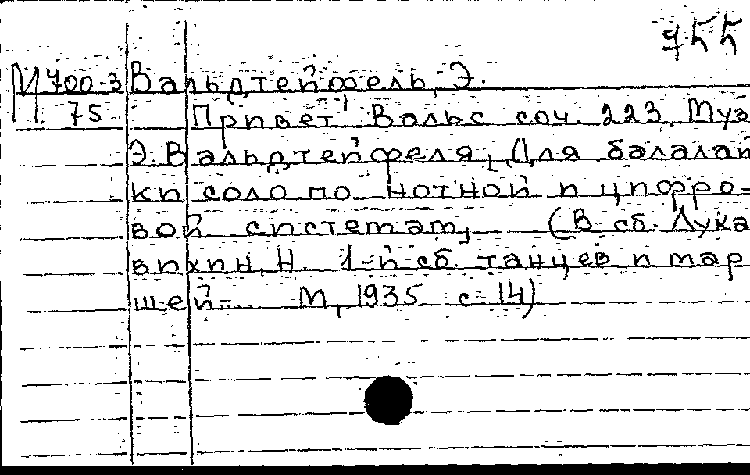 М 700-3 Вальдтейфель, Э.
75 Привет. Вальс соч. 223. Муз
Э. Вальдтейфеля, Для балалай
ки соло по нотной и цифро-
вой системам, (В сб. Лука
вихин, Н. 1-й сб. танцев и мар
шей- М, 1935 с 14)